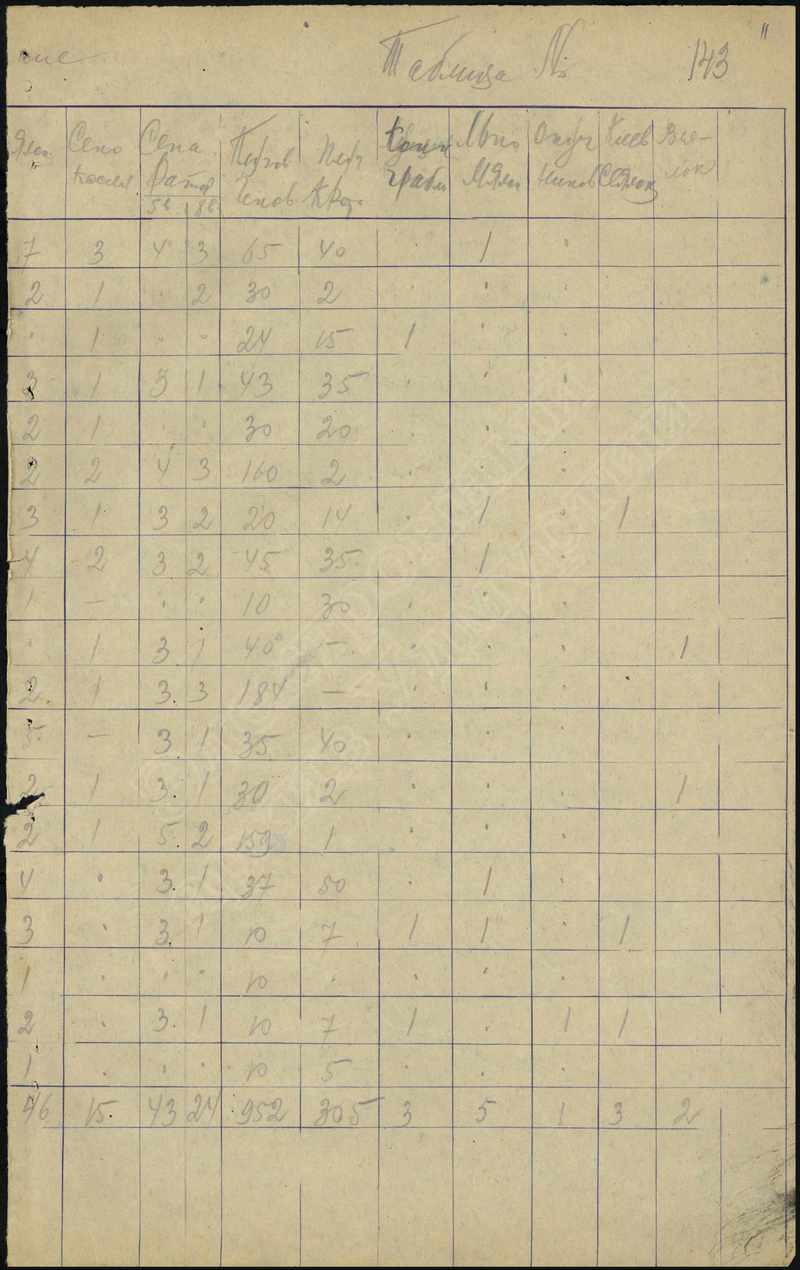 Таблица № 143
Сено Сепа Плуг Конн Льно Окуч Клев Вея-
косил ратор грабли Мялок ников лок
5 8
7 3 4 3 65 40 · 1 ·
2 1 · 2 30 2 · · ·
· 1 · · 24 15 1 · ·
3 1 3 1 43 35 · · ·
2 1 · · 30 20 · · ·
2 2 4 3 160 2 · · ·
3 1 3 2 20 14 · 1 · 1
4 2 3 2 45 35 · 1 ·
1 — · · 10 30 · · ·
· 1 3 1 40 — · · · 1
2 1 3 3 184 — · · ·
5 — 3 1 35 40 · · ·
2 1 3 1 30 2 · · · 1
2 1 5 2 153 1 · · ·
4 · 3 1 37 50 · 1 ·
3 · 3 1 10 7 1 1 · 1
1 · · · 10 · · · ·
2 · 3 1 10 7 1 · 1 1
1 · · · 10 5 · · ·
46 15 43 24 952 305 3 5 1 3 2